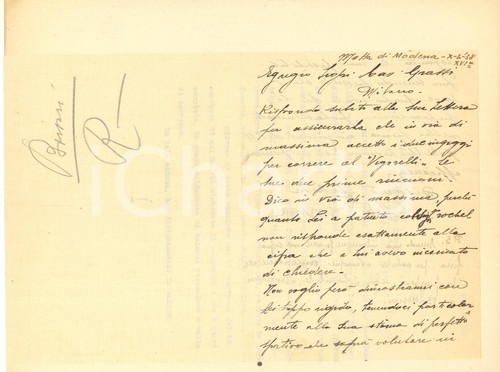 Motta di Módena - X-2-38
XVI°
Egregio Sigr Cav Grassi
Milano.
Rispondo subito alla sua lettera
per assicurarla che in via di
massima accetto i due ingaggi
per correre al "Vigorelli" le
sue due prime riunioni.
Dico in via di massima perché
quanto Lei a patuito col
non risponde esattamente alla
cifra che a lui avevo incaricato
di chiedere.
Non voglio però dimostrarmi con
Lei troppo rigido, tenendoci particolar
mente alla sua stima di perfetto
sportivo che saprà valutare in
R